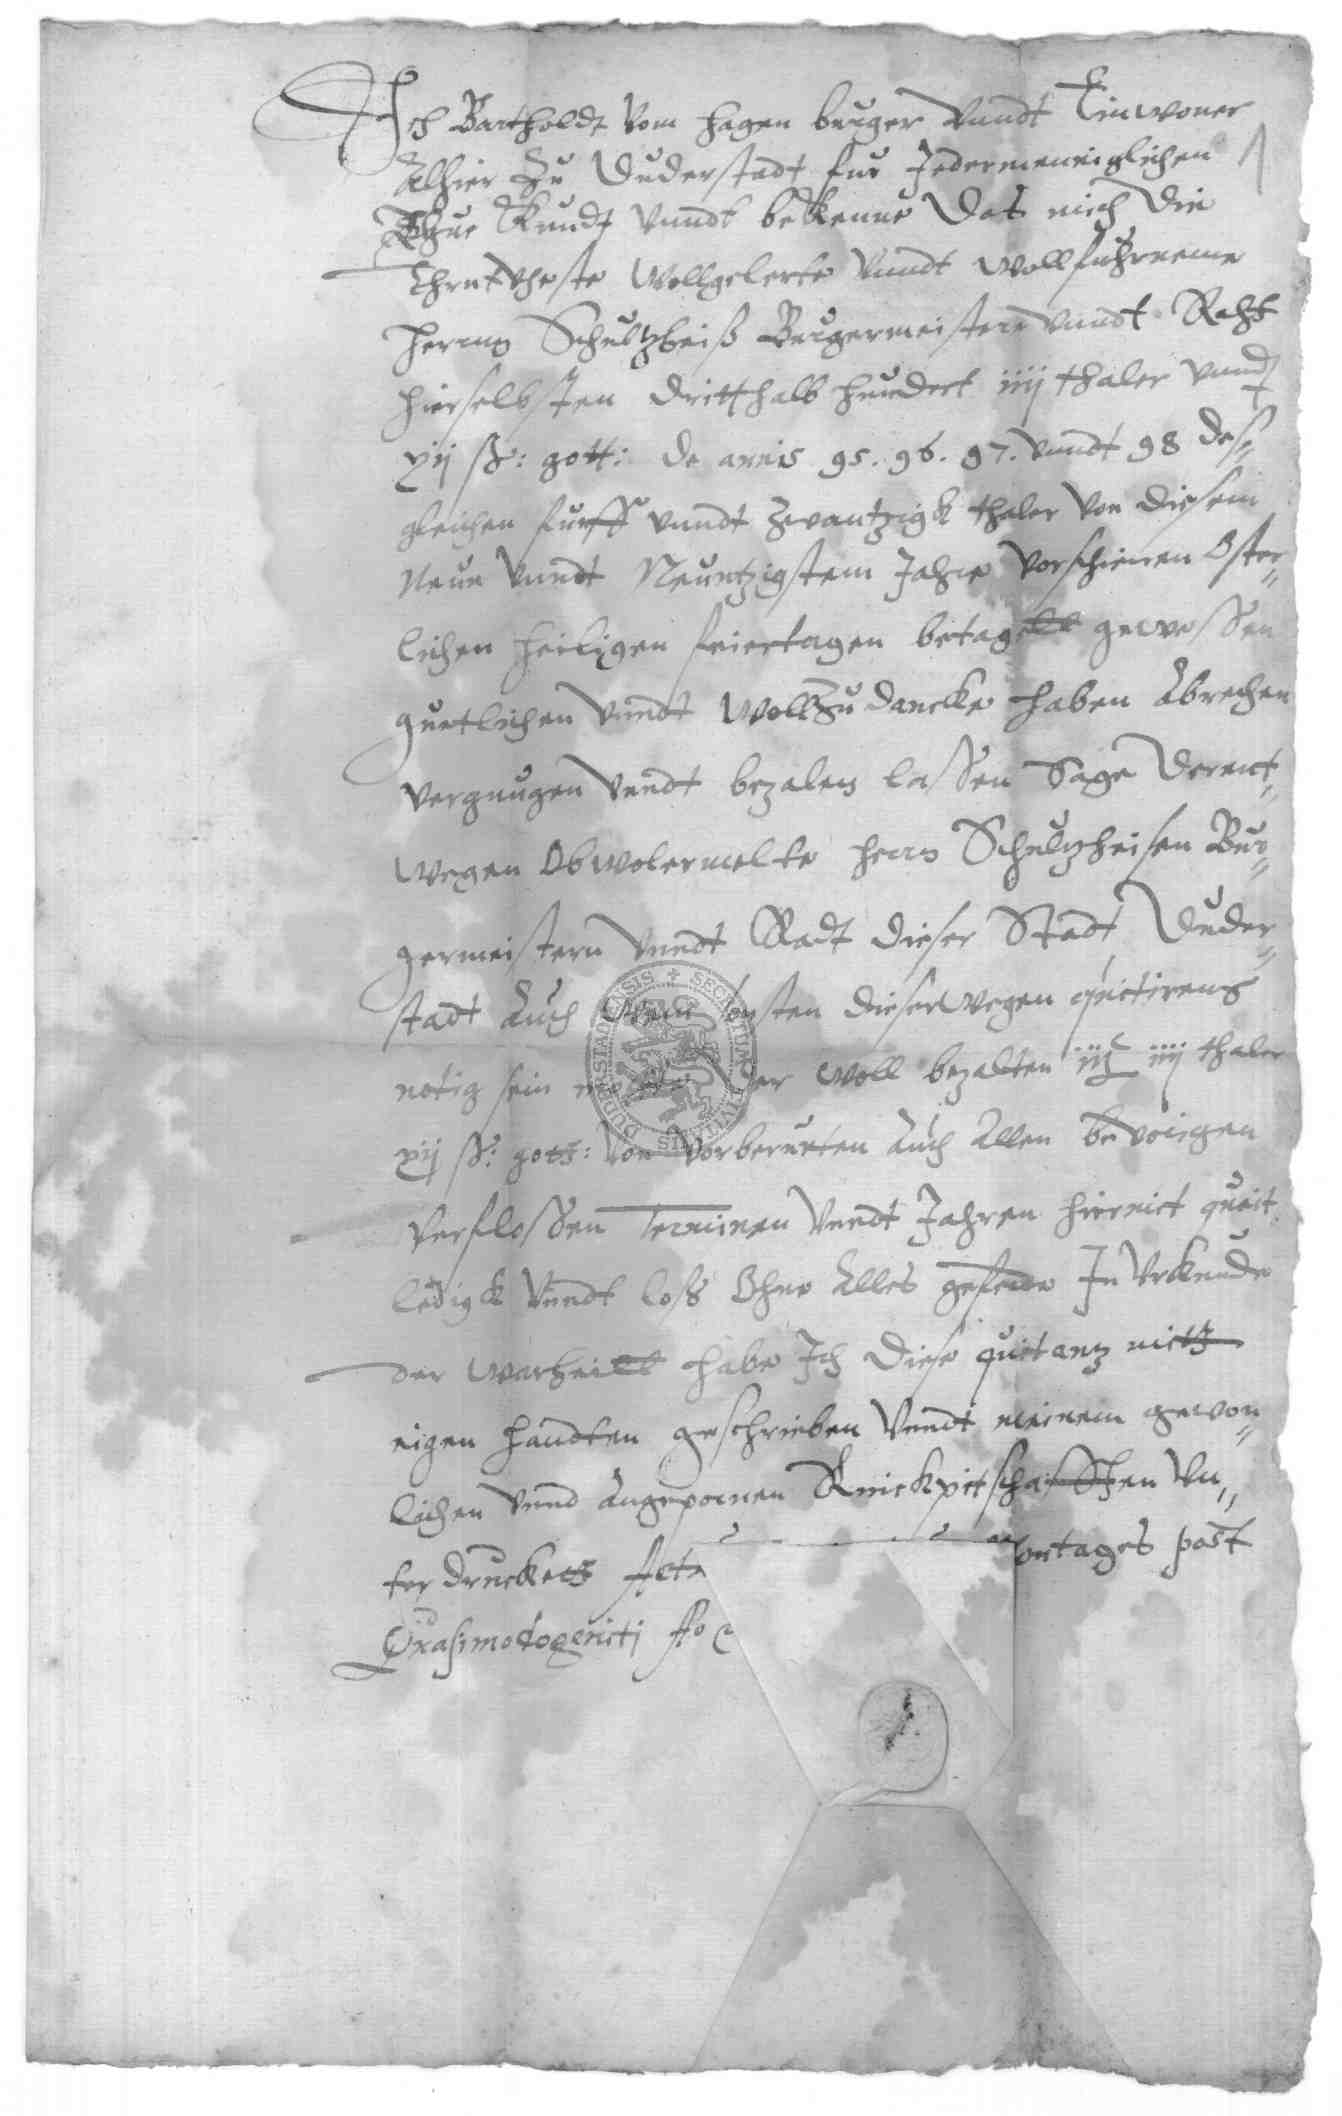 Ich Bartholdt vom Hagen burger vnndt Einwoner
Alhier Zu Duderstadt fur Jedermenniglichen
Thue Kundt vnndt bekenne Das mich Die
Ehrntvheste Wollgelerte vnndt Wollfuhrneme
Herrnn Schultheiß Burgermeistere vnndt Raht
hierselbsten Dritthalb hundert iiij thaler vnnd
xij ß: gott: de annis 95. 96. 97. vnndt 98 des„
gleichen funff vnndt Zwantzigk thaler von Diesem
Neun vnndt Neuntzigstem Jahre vorschienen Oster„
lichen Heiligen feiertagen betagett gewessen
guetlichen vnndt Woll Zu Dancke haben Abrechen
vergnugen vnndt bezalen lassen Sage Derent„
wegen Obwolermelte Herrn Schultheisen Bur„
germeistern vnndt Radt Dieser Stadt Duder„
stadt Auch Wem sonsten Dieserwegen quitirens
notig sein Der Woll bezalten iiij thaler
xij ß: gott: von vorberurten Auch Allen bevorigen
verflossen Terminen vnndt Jahren hiermit queit
ledigk vnndt loß Ohne Alles geferde In Vrkunde
Der Warheitt habe Ich Diese quitantz mitt
eigen Handten geschrieben vnndt meinem gewon„
lichen vnnd Angepornen Pitschafften Vn„
ter Druckett Act ontages post
Quasimodogeniti Ao
SECRETUM CIVITATIS DUDERSTADENSIS